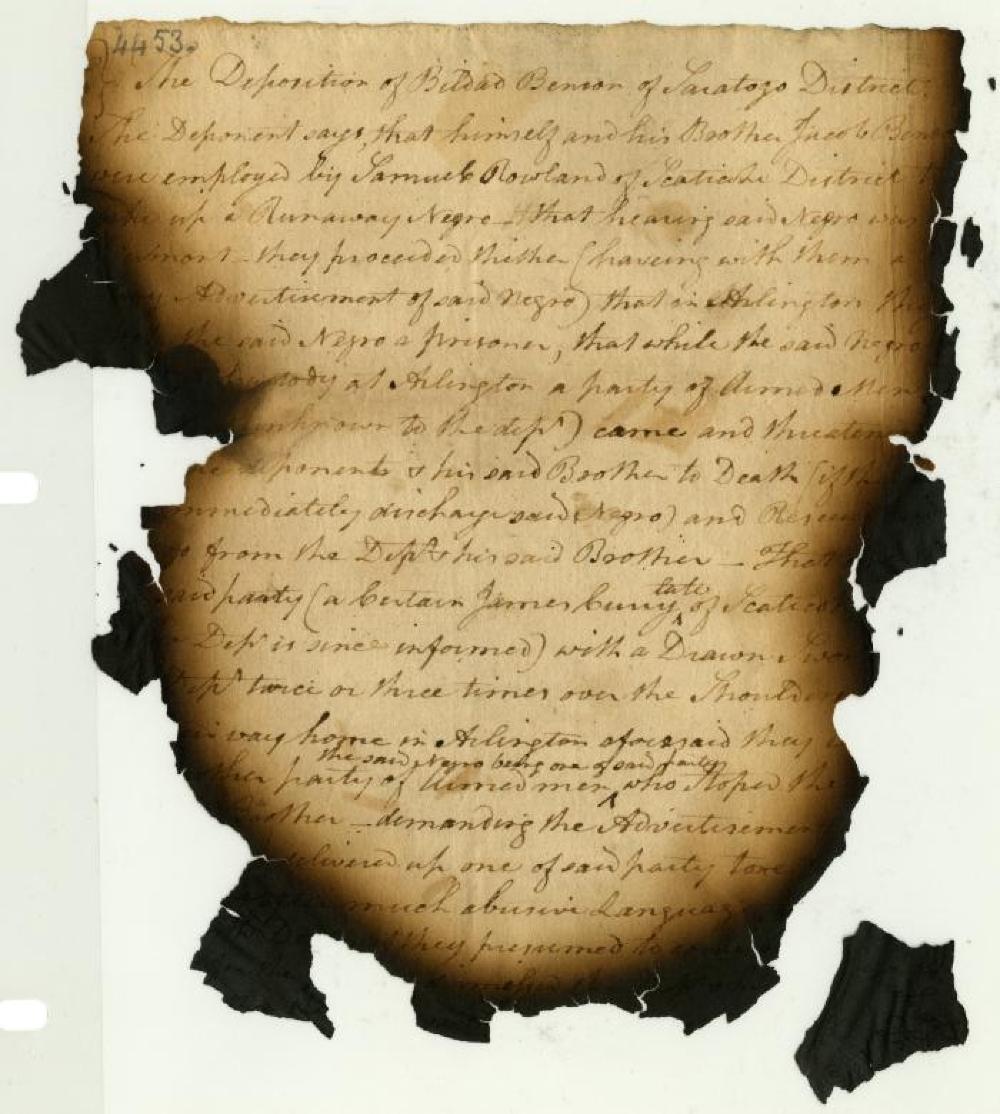 4453.
The Deposition of Bildad Benson of Saratogo District.
The Deponent says, that himself and his Brother Jacob Ben
were employed by Samuel Rowland of Scaticke District
up a Runaway Negro that hearing said Negro was
they proceeded thither (haveing with them a
Advertisement of said Negro) that in Arlington they
the said Negro a prisoner, that while the said Negro
Custody at Arlington a party of Armed Men
unknown to the dept) came and threaten
deponent & his said Brother to Death (if th
mmediately discharge said Negro) and Rescu
from the Dept & his said Brother — That
said party (a Certain James Curry late of Scatico
Dept is since informed) with a Drawn Swor
Dept twice or three times over the Shoulder
way home in Arlington aforesaid they
the said Negro being one of said party
ther party of Armed men who stoped the
Brother — demanding the Advertisemen
delivered up one of said party tore
much abusive Language
they presumed to